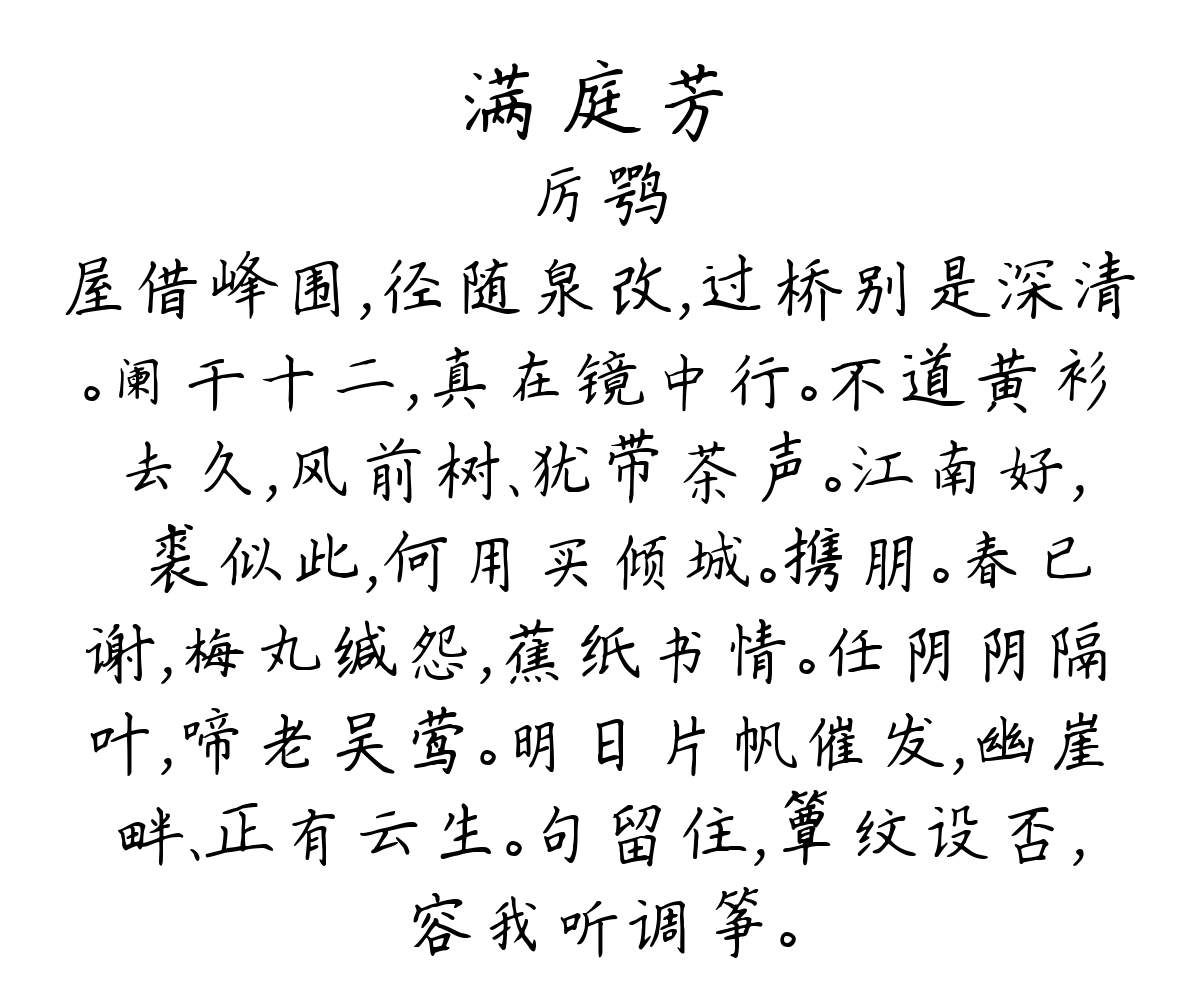 满庭芳
厉鹗
屋借峰围,径随泉改,过桥别是深清
。阑干十二,真在镜中行。不道黄衫
去久,风前树、犹带茶声。江南好,
裘似此,何用买倾城。携朋。春已
谢,梅丸缄怨,蕉纸书情。任阴阴隔
叶,啼老吴莺。明日片帆催发,幽崖
畔、正有云生。句留住,簟纹设否,
容我听调筝。